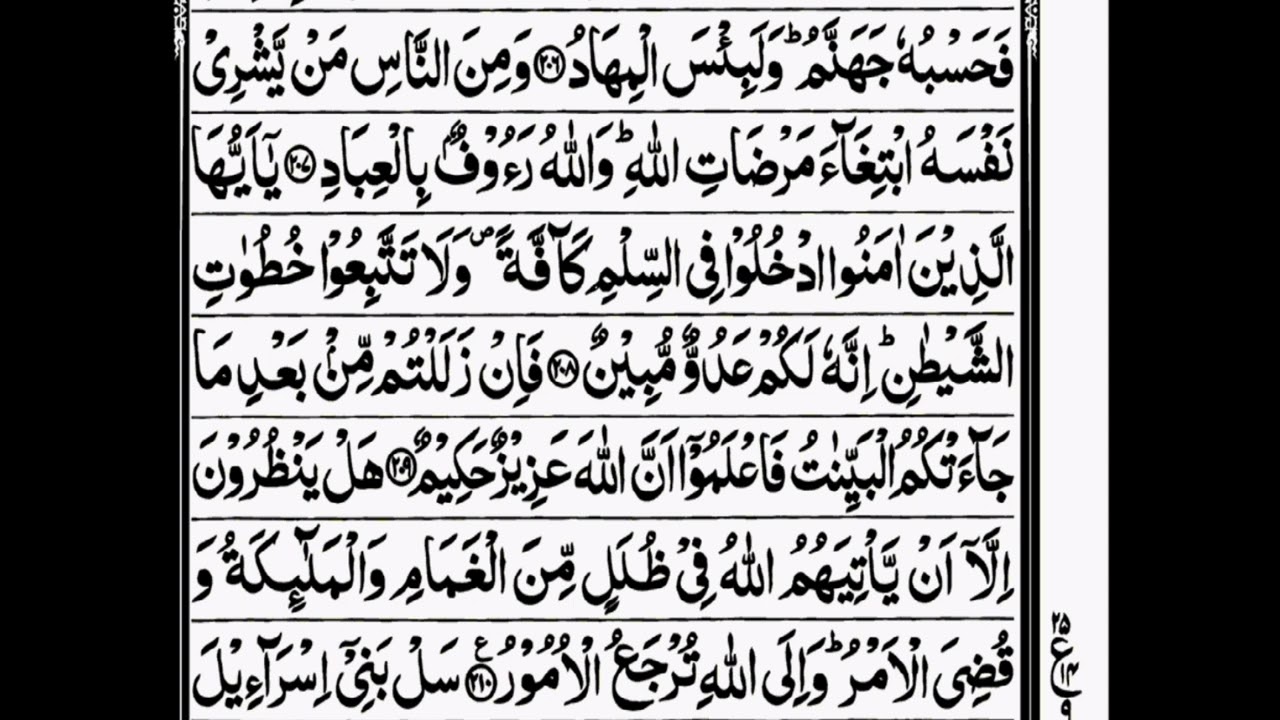 فَحَسْبُهٗ جَهَنَّمُ ؕ وَلَبِئْسَ الْمِهَادُ ﴿۲۰۶﴾ وَمِنَ النَّاسِ مَنْ یَّشْرِیْ
نَفْسَهُ ابْتِغَآءَ مَرْضَاتِ اللّٰهِ ؕ وَاللّٰهُ رَءُوْفٌۢ بِالْعِبَادِ ﴿۲۰۷﴾ یٰۤاَیُّهَا
الَّذِیْنَ اٰمَنُوا ادْخُلُوْا فِی السِّلْمِ كَآفَّةً ۪ وَلَا تَتَّبِعُوْا خُطُوٰتِ
الشَّیْطٰنِ ؕ اِنَّهٗ لَكُمْ عَدُوٌّ مُّبِیْنٌ ﴿۲۰۸﴾ فَاِنْ زَلَلْتُمْ مِّنْۢ بَعْدِ مَا
جَآءَتْكُمُ الْبَیِّنٰتُ فَاعْلَمُوْۤا اَنَّ اللّٰهَ عَزِیْزٌ حَكِیْمٌ ﴿۲۰۹﴾ هَلْ یَنْظُرُوْنَ
اِلَّاۤ اَنْ یَّاْتِیَهُمُ اللّٰهُ فِیْ ظُلَلٍ مِّنَ الْغَمَامِ وَالْمَلٰٓئِكَةُ وَ
قُضِیَ الْاَمْرُ ؕ وَاِلَی اللّٰهِ تُرْجَعُ الْاُمُوْرُ ﴿۲۱۰﴾ ع سَلْ بَنِیْۤ اِسْرَآءِیْلَ
۲۵
ع
۱۴
۹